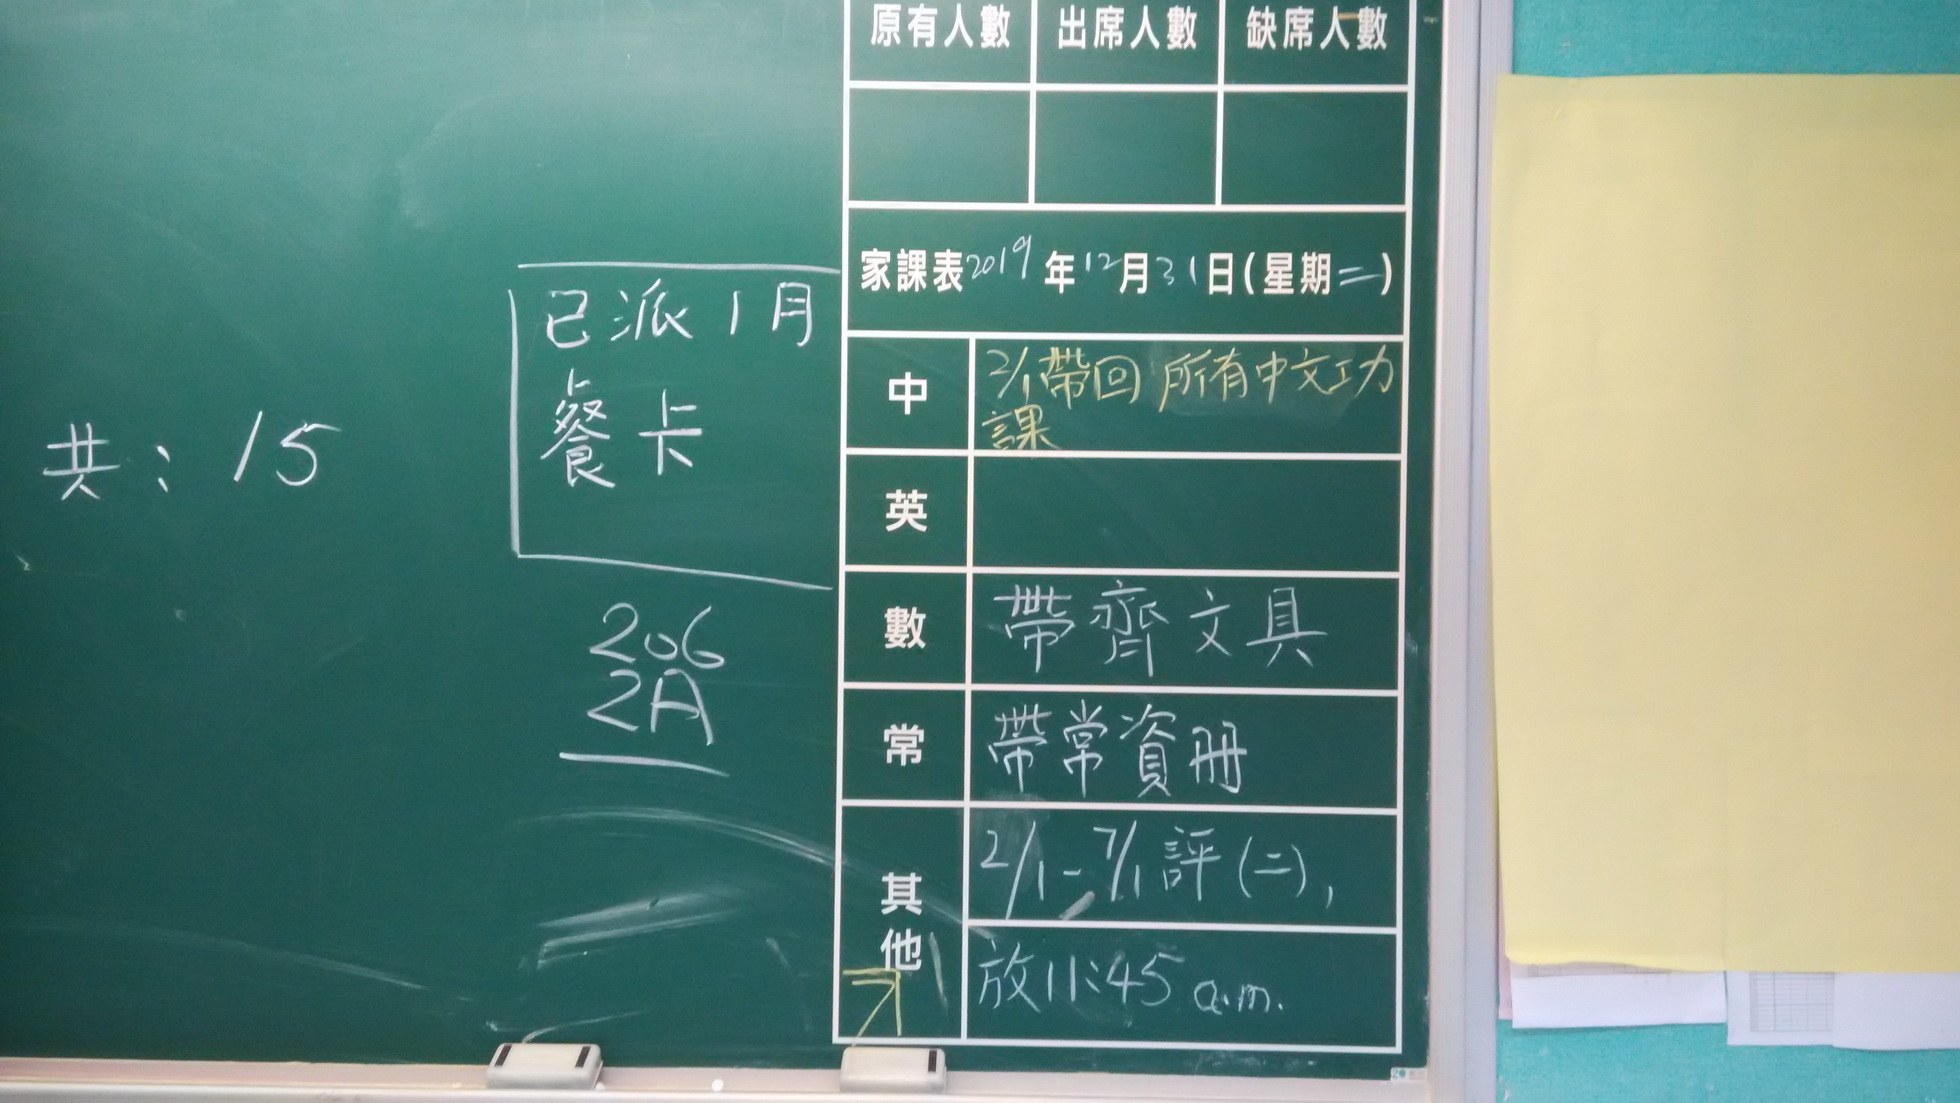 原有人數 出席人數 缺席人數
家課表2019年12月31日(星期二)
中 2/1帶回所有中文功
課
英
數 帶齊文具
常 帶常資冊
其他 2/1-7/1評(二),
放11:45 a.m.
已派1月
餐卡
206
2A
共:15